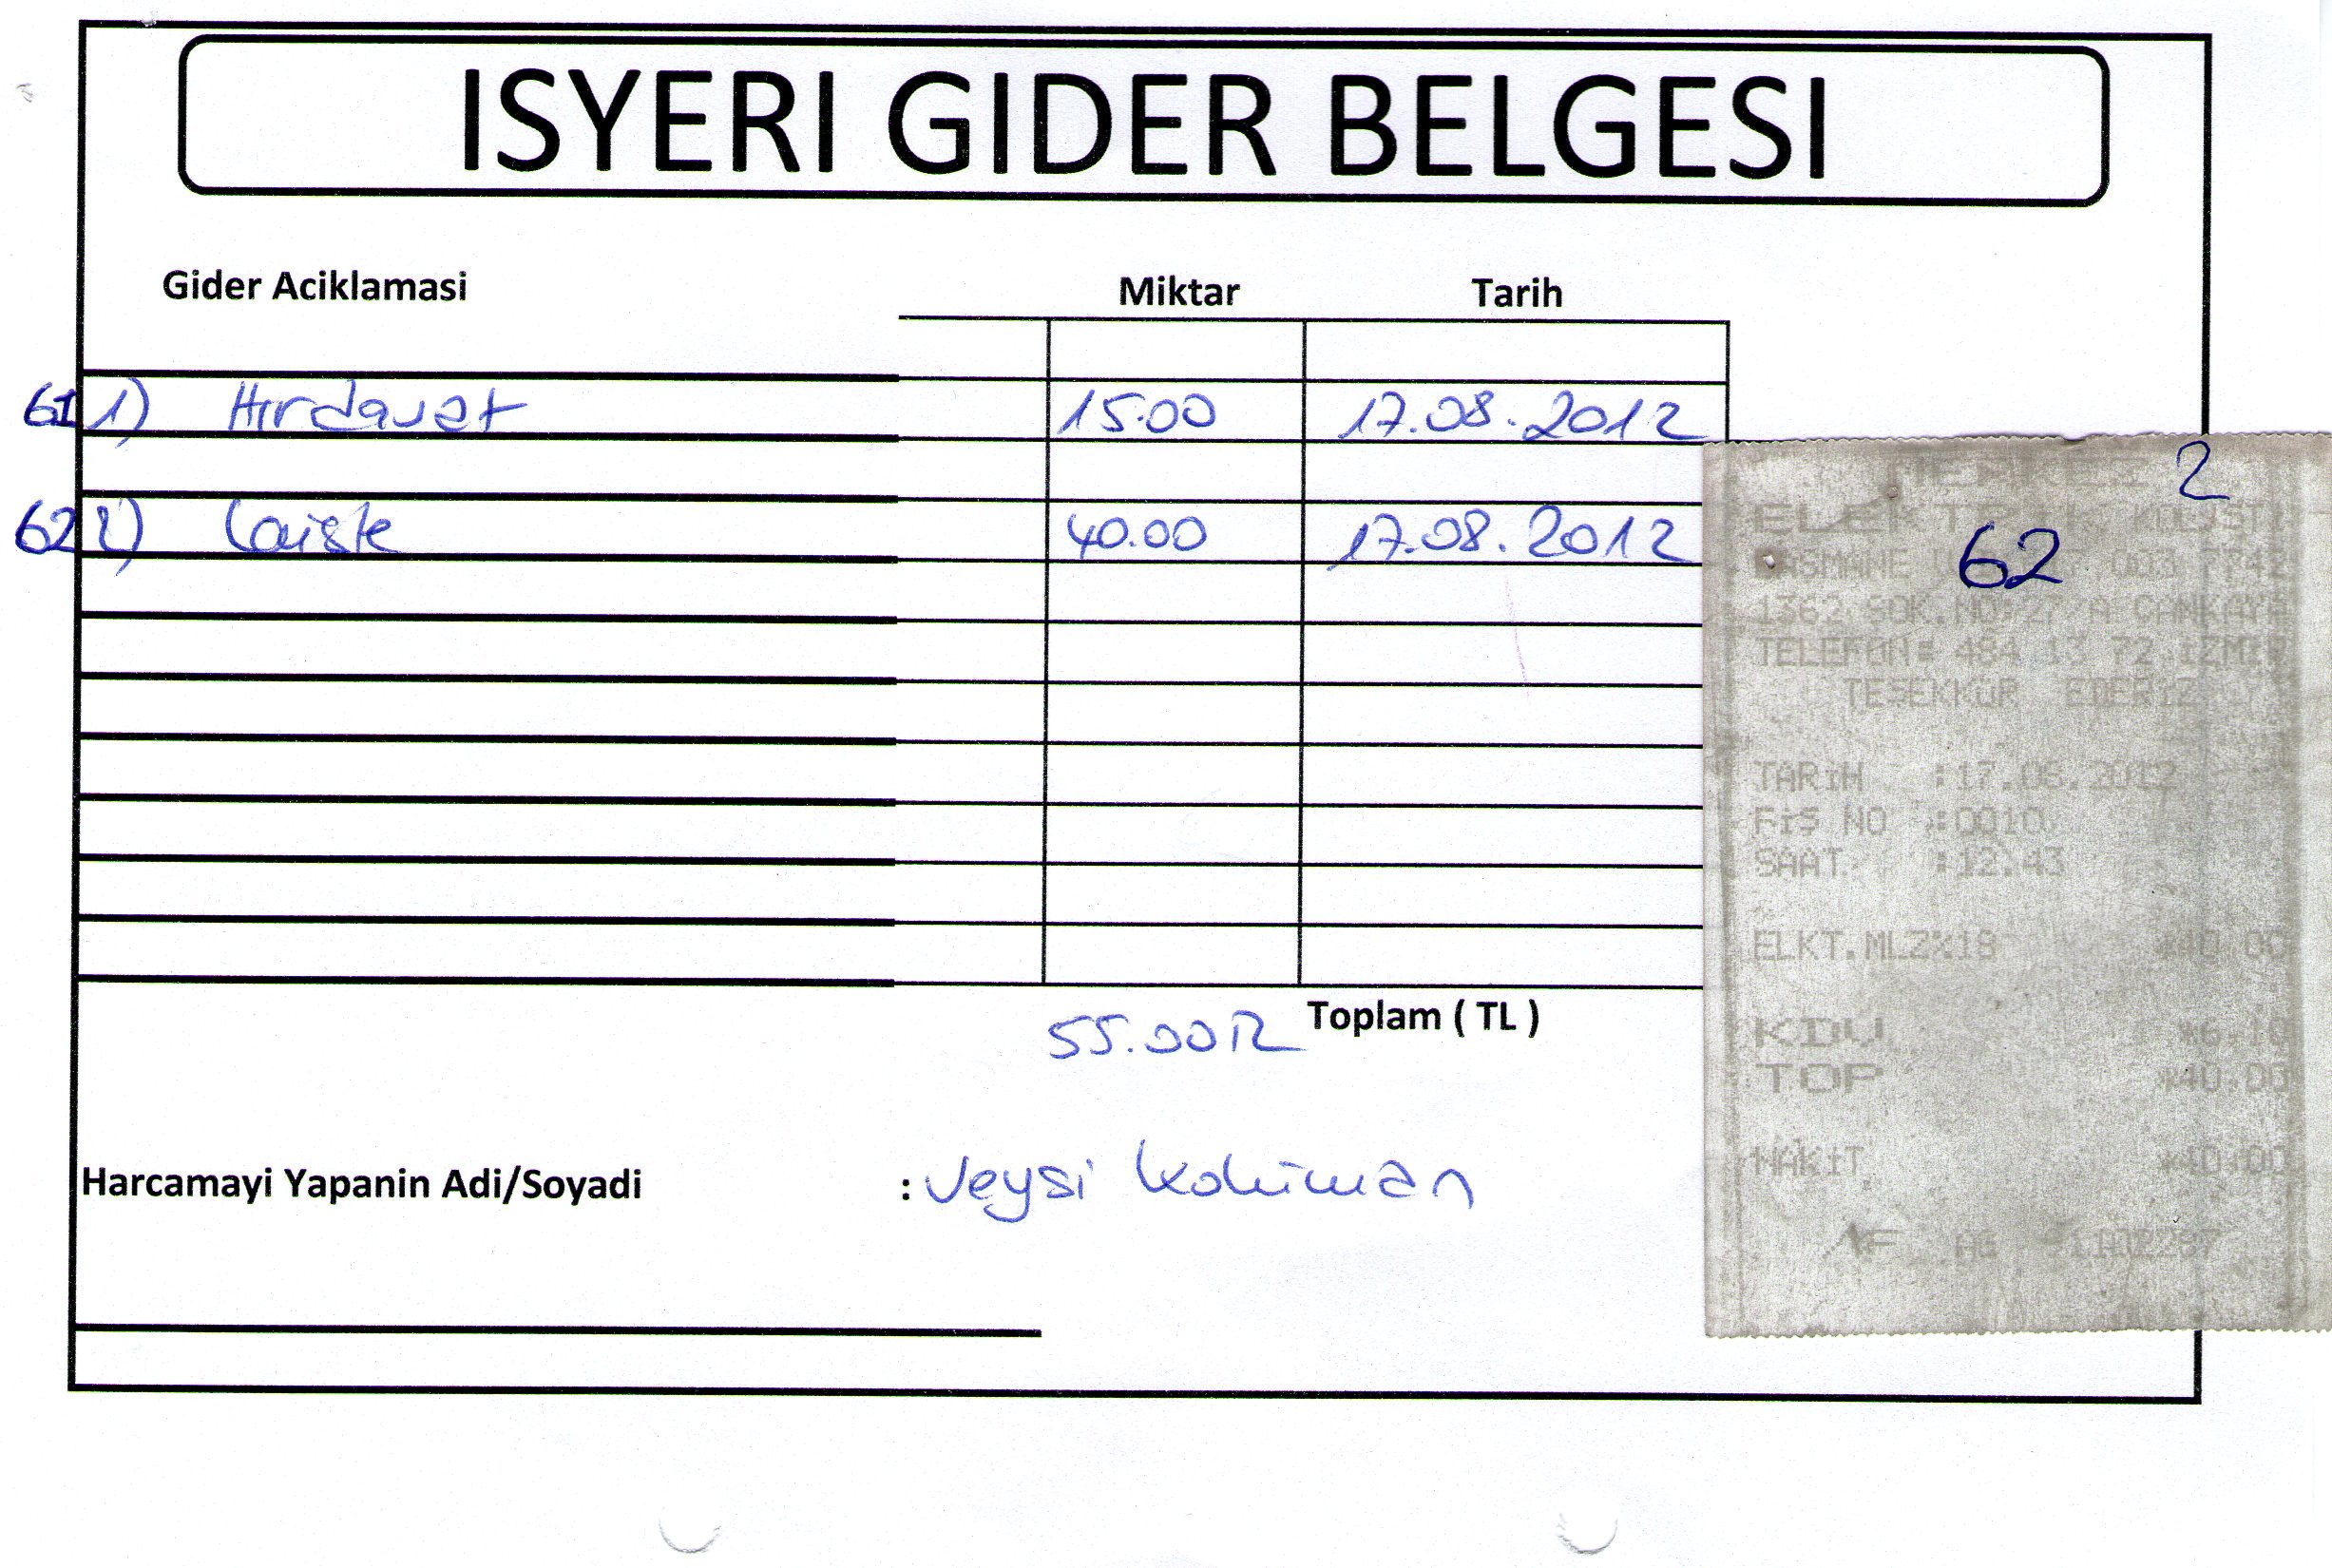 ISYERI GIDER BELGESI
Gider Aciklamasi Miktar Tarih
61 1) Hırdavat 15.00 17.08.2012
62 2) 40.00 17.08.2012
55.00 TL Toplam ( TL )
Harcamayi Yapanin Adi/Soyadi : Veysi
2
62
1362 SOK.NO:27/A CANKAYA
TELEFON: 484 13 72 iZMiR
TEŞEKKüR EDERiZ
TARiH :17.08.2012
FiŞ NO :0010
SAAT :12.43
ELKT.MLZ%18 *40.00
KDV *6.10
TOP *40.00
NAKiT *40.00